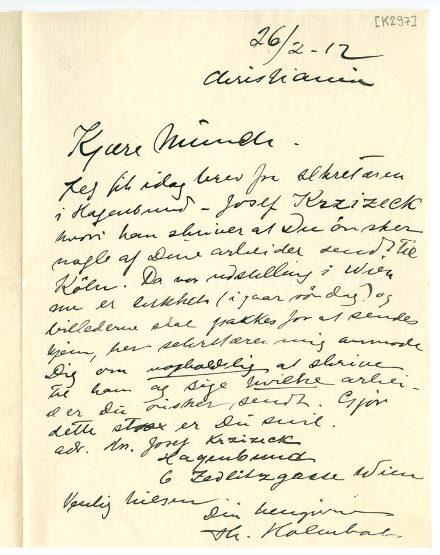 [K297]
26/2-12
Christiania
Kjære Munch.
Jeg fik idag brev fra sekretæren
i Hagenbund - Josef Krzizeck
hvori han skriver at Du ønsker
nogle af Dine arbeider sendt til
Köln. Da vor udstilling i Wien
nu er lukket (i gaar søndag) og
billederne skal pakkes for at sendes
hjem, ber sekretæren mig anmode
Dig om uopholdelig at skrive
til ham og sige hvilke arbei-
der Du ønsker sendt. Gjør
dette strax er Du snil.
adr. Hr. Josef Krzizeck
Hagenbund
6 Zedlitzgasse Wien
Venlig hilsen
Din hengivne
Th. Holmboe